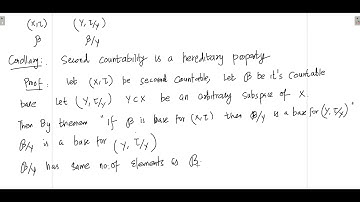 (X,τ) (Y, τ/Y)
β β/Y
Corollary: Second Countability is a hereditary property
Proof: Let (X,τ) be second Countable, Let β be it's Countable
base Let (Y, τ/Y) Y⊂X be an arbitrary subspace of X.
Then By theorem "If β is base for (X,τ) then β/Y is a base for (Y, τ/Y)"
β/Y is a base for (Y, τ/Y)
β/Y has same no. of elements as β.